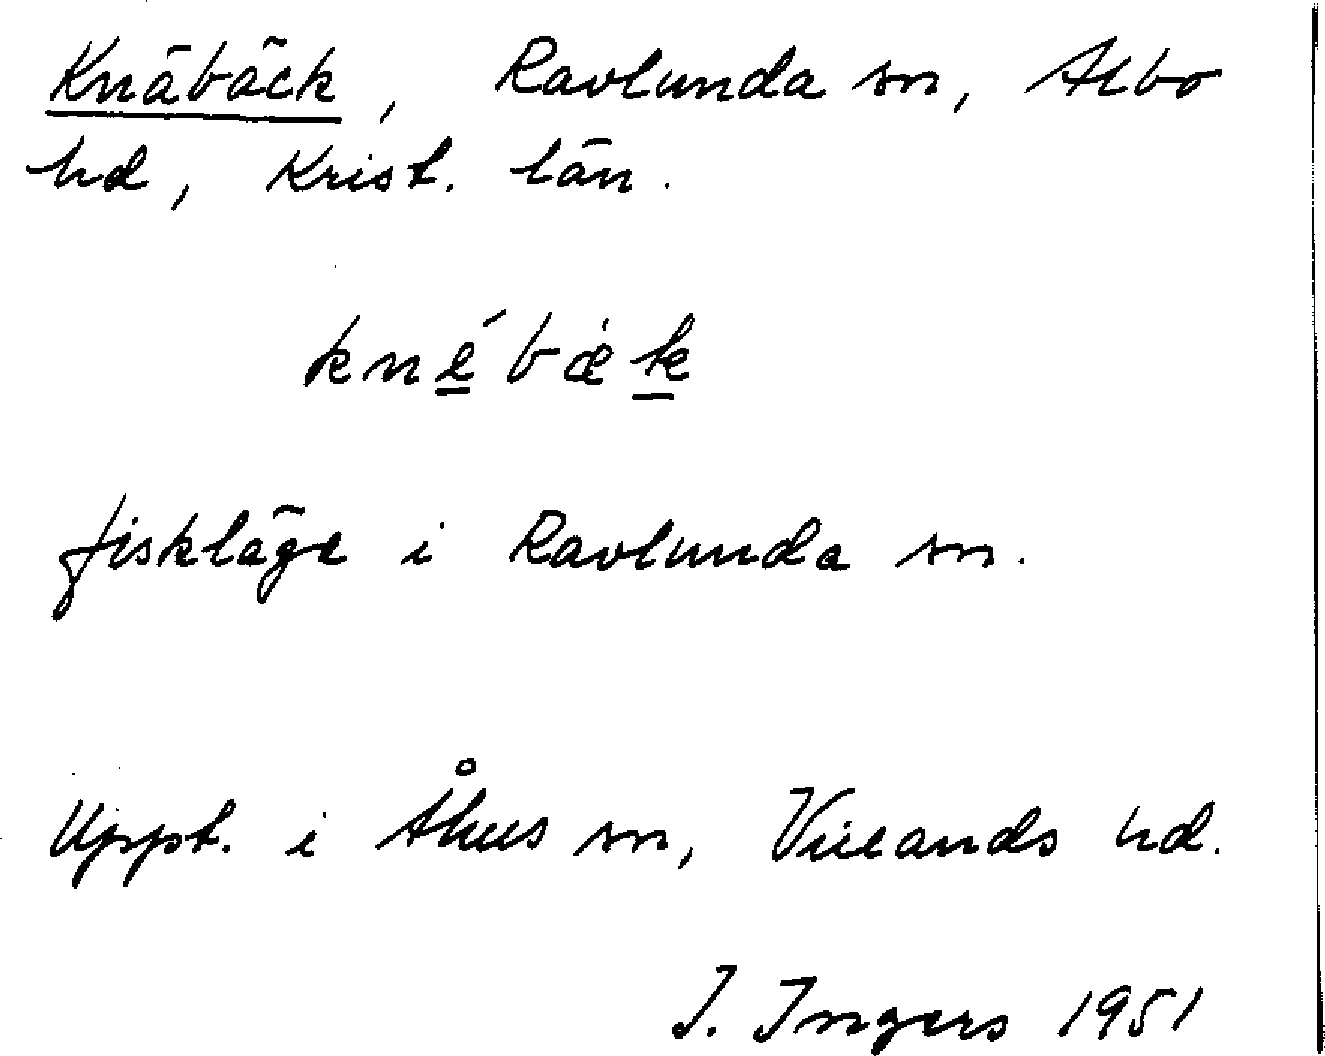 Knäbäck, Ravlunda sn, Albo
hd, Krist. län.
knébæk
fiskläge i Ravlunda sn.
Uppt. i Åhus sn, Villands hd.
I. Ingers 1951